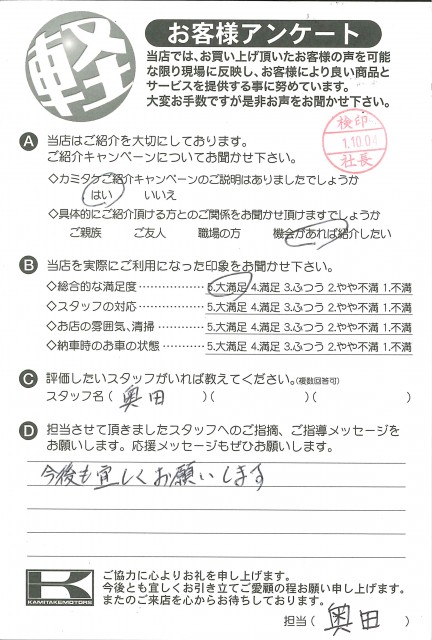 軽
お客様アンケート
当店では、お買い上げ頂いたお客様の声を可能
な限り現場に反映し、お客様により良い商品と
サービスを提供する事に努めています。
大変お手数ですが是非お声をお聞かせ下さい。
検印
1.10.04
社長
A 当店はご紹介を大切にしております。
ご紹介キャンペーンについてお聞かせ下さい。
◇カミタケご紹介キャンペーンのご説明はありましたでしょうか
はい いいえ
◇具体的にご紹介頂ける方とのご関係をお聞かせ頂けますでしょうか
ご親族 ご友人 職場の方 機会があれば紹介したい
B 当店を実際にご利用になった印象をお聞かせ下さい。
◇総合的な満足度‥‥‥‥‥5.大満足 4.満足 3.ふつう 2.やや不満 1.不満
◇スタッフの対応‥‥‥‥‥5.大満足 4.満足 3.ふつう 2.やや不満 1.不満
◇お店の雰囲気、清掃‥‥‥5.大満足 4.満足 3.ふつう 2.やや不満 1.不満
◇納車時のお車の状態‥‥‥5.大満足 4.満足 3.ふつう 2.やや不満 1.不満
C 評価したいスタッフがいれば教えてください。(複数回答可)
スタッフ名( 奥田 )( )( )
D 担当させて頂きましたスタッフへのご指摘、ご指導メッセージを
お願いします。応援メッセージもぜひお願いします。
今後も宜しくお願いします
K
KAMITAKEMOTORS
ご協力に心よりお礼を申し上げます。
今後とも宜しくお引き立てご愛顧の程お願い申し上げます。
またのご来店を心からお待ちしております。
担当( 奥田 )